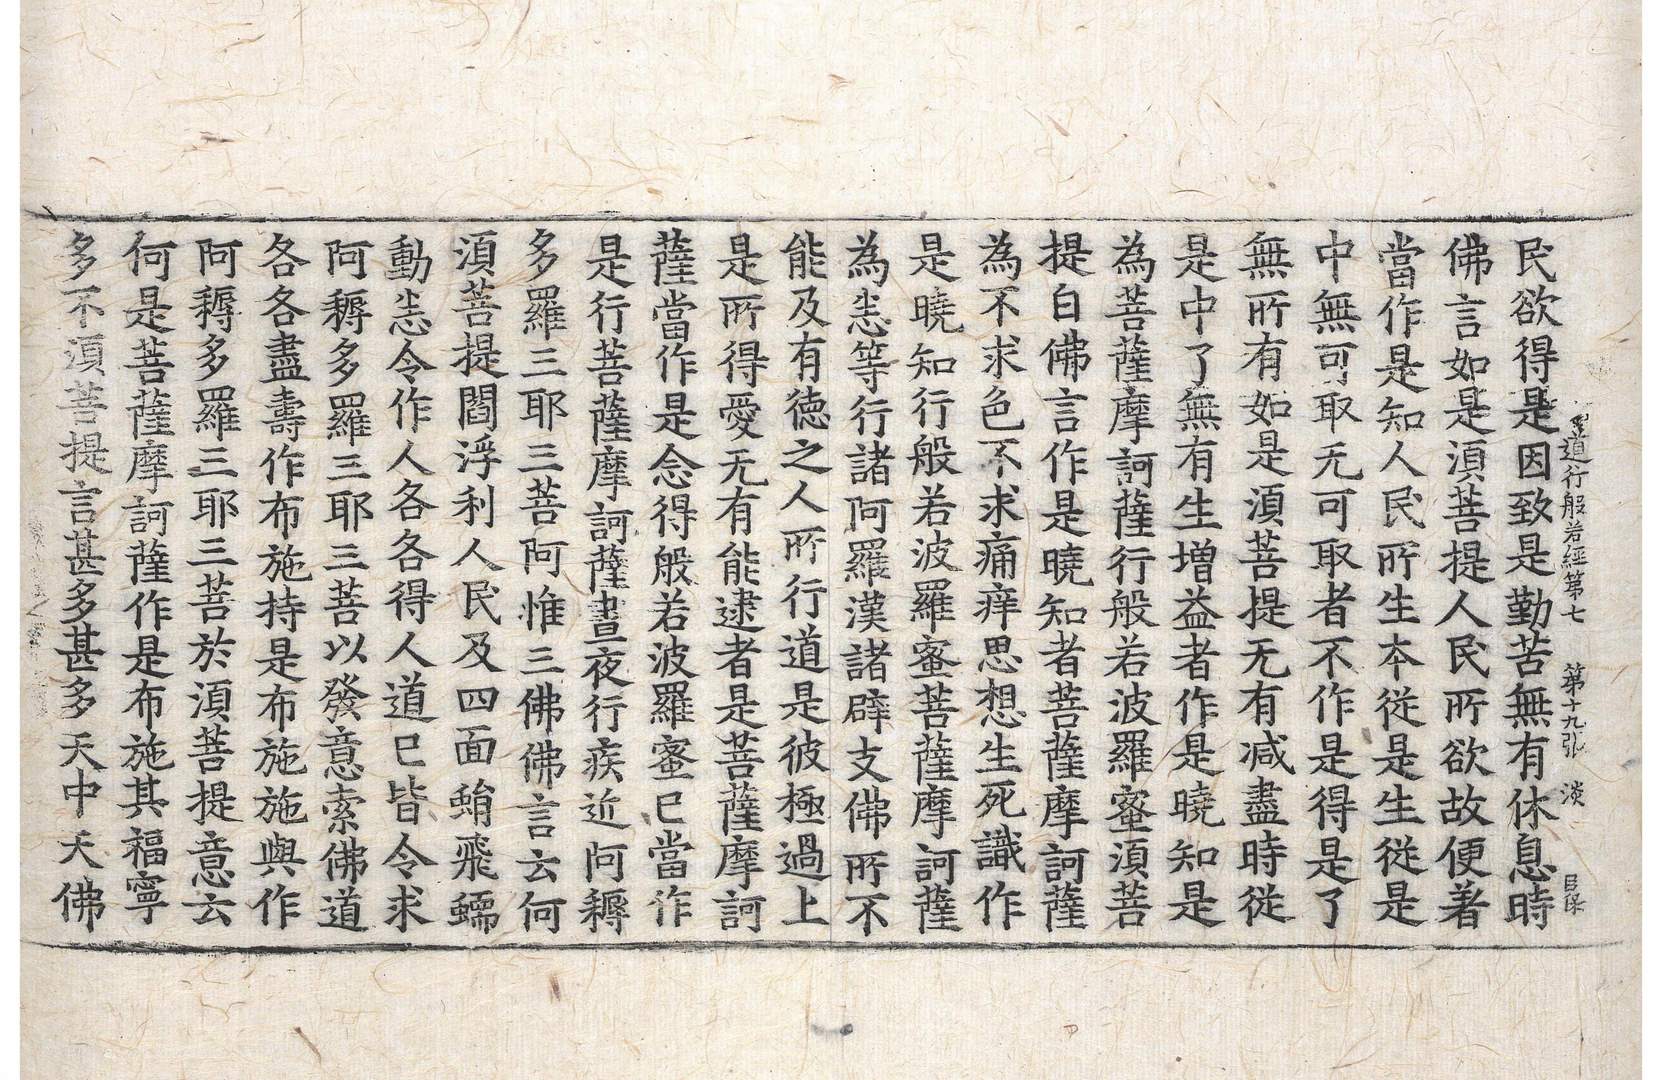 道行般若經第七 第十九張 淡
民欲得是因致是勤苦無有休息時
佛言如是湏菩提人民所欲故便著
當作是知人民所生本從是生從是
中無可取无可取者不作是得是了
無所有如是湏菩提无有減盡時從
是中了無有生增益者作是曉知是
為菩薩摩訶薩行般若波羅蜜湏菩
提白佛言作是曉知者菩薩摩訶薩
為不求色不求痛痒思想生死識作
是曉知行般若波羅蜜菩薩摩訶薩
為悉等行諸阿羅漢諸辟支佛所不
能及有德之人所行道是彼極過上
是所得愛无有能逮者是菩薩摩訶
薩當作是念得般若波羅蜜已當作
是行菩薩摩訶薩晝夜行疾近阿耨
多羅三耶三菩阿惟三佛佛言云何
湏菩提閻浮利人民及四面蜎飛蠕
動悉令作人各各得人道已皆令求
阿耨多羅三耶三菩以發意索佛道
各各盡壽作布施持是布施施與作
阿耨多羅三耶三菩於湏菩提意云
何是菩薩摩訶薩作是布施其福寧
多不湏菩提言甚多甚多天中天佛